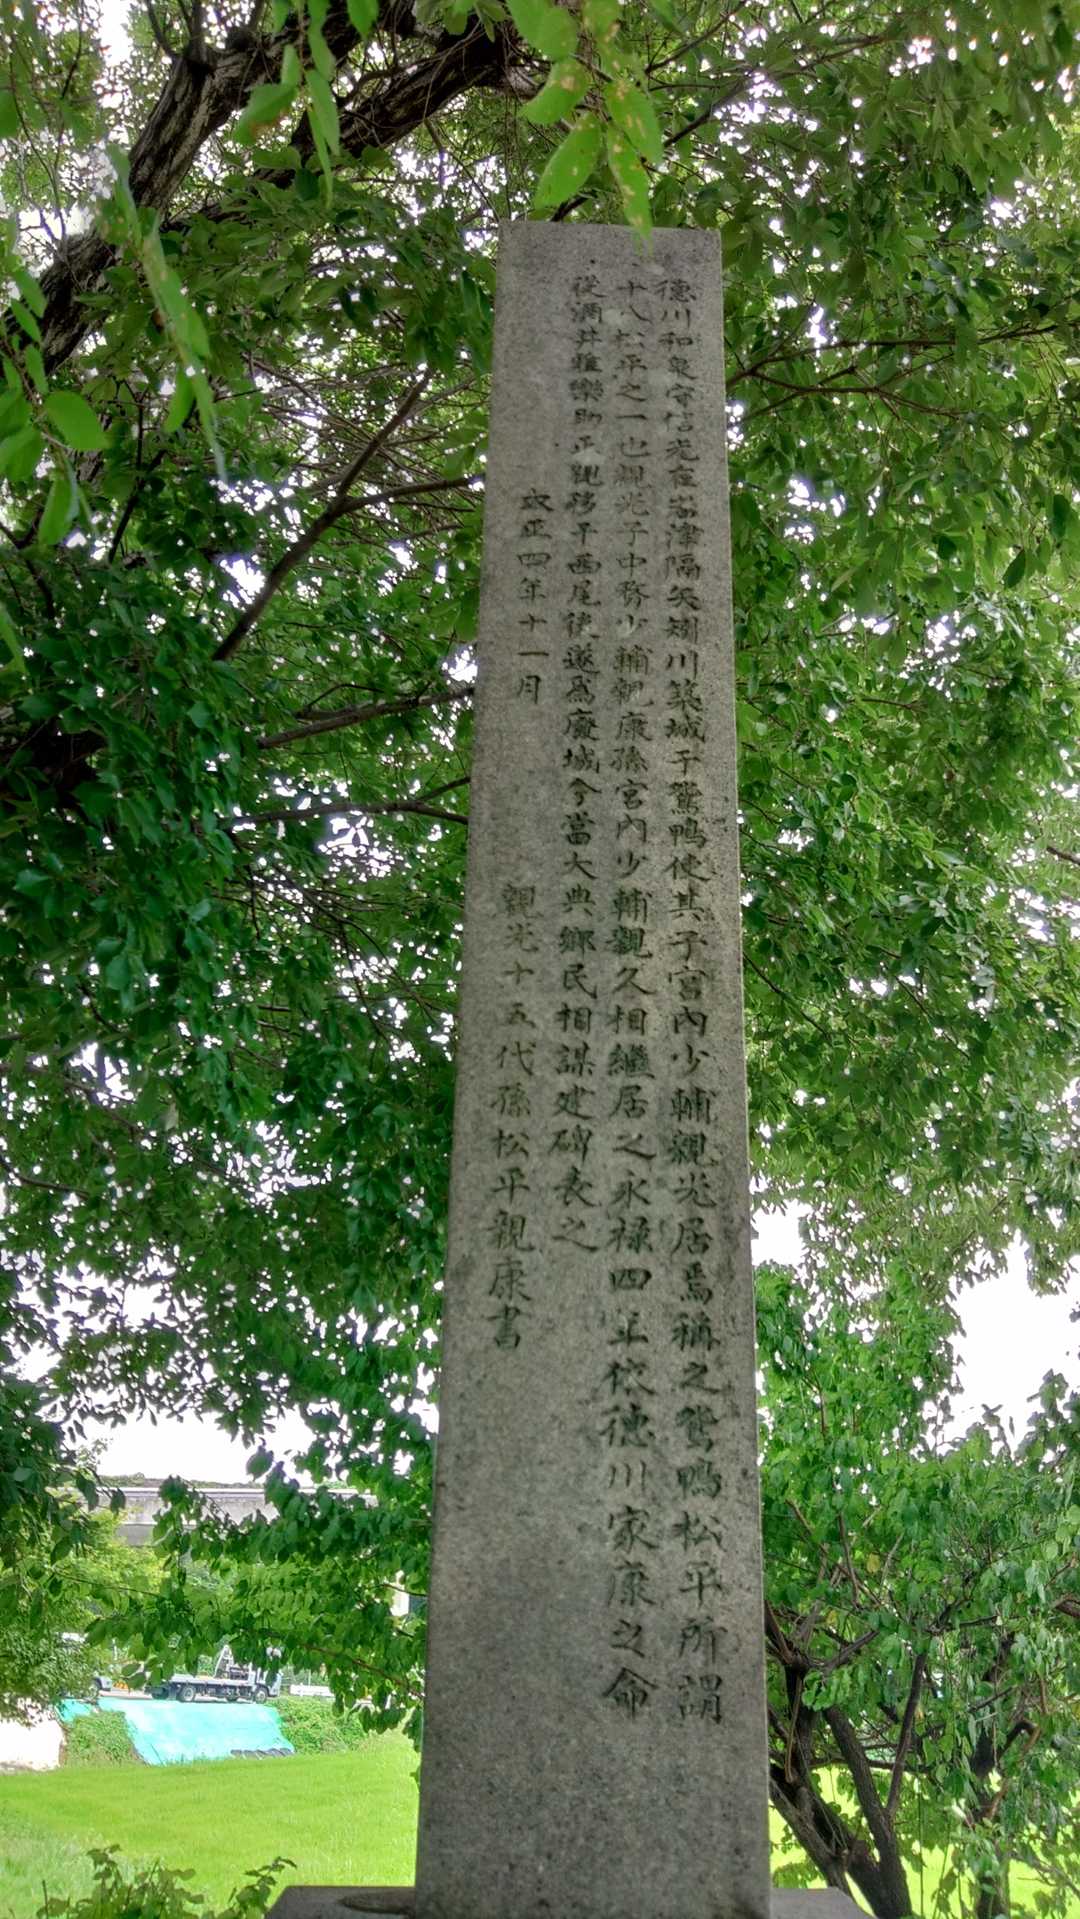 徳川和泉守信光在岩津隔矢矧川築城于鴛鴨使其子宮內少輔親光居焉稱之鴛鴨松平所謂
十八松平之一也親光子中務少輔親康孫宮內少輔親久相繼居之永祿四年依德川家康之命
從酒井雅樂助正親移于西尾後遂爲廢城今當大典鄕民相謀建碑表之
大正四年十一月
親光十五代孫松平親康書